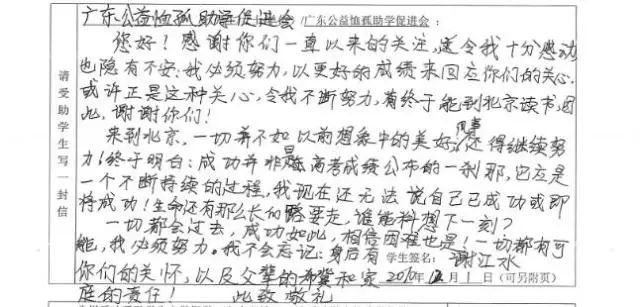 广东公益恤孤助学促进会
/广东公益恤孤助学促进会：
请受助学生写一封信
您好！感谢你们一直以来的关注，这令我十分感动
也隐有不安：我必须努力，以更好的成绩来回应你们的关心
或许正是这种关心，令我不断努力，有终于能到北京读书，因
此，谢谢你们！
来到北京，一切并不如以前想象中的美好，凡事还得继续努
力！终于明白：成功并非是高考成绩公布的一刹那，它应是
一个不断持续的过程，我现在还无法说自己已成功或即
将成功！生命还有那么长的路要走，谁能料想下一刻？
一切都会过去，成功如此，相信困难也是！一切都有可
能，我必须努力。我不会忘记：身后有 学生签名：谢江水
你们的关怀，以及父辈的希冀和家 2010年 月1日（可另附页）
庭的责任！ 此致 敬礼